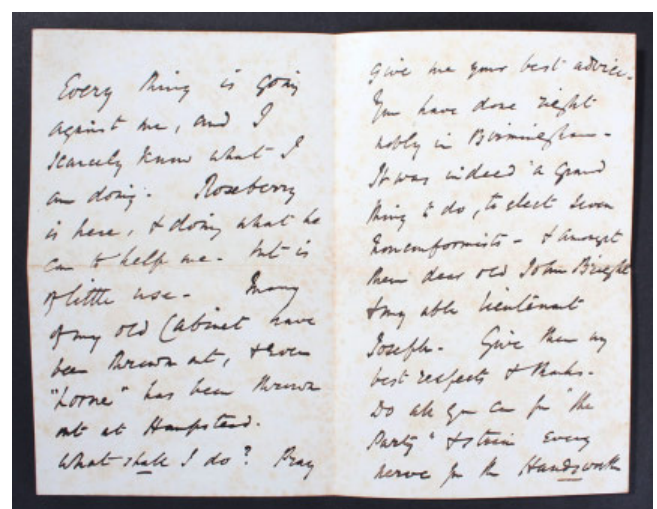 Every thing is going
against me, and I
scarcely know what I
am doing. Roseberry
is here, & doing what he
can to help me - but is
of little use - Many
of my old Cabinet have
been thrown out, & even
"Horne" has been thrown
out at Hampstead.
What shall I do? Pray
give me your best advice.
You have done right
nobly in Birmingham -
It was indeed a grand
thing to do, to elect seven
Nonconformists - & amongst
them dear old John Bright
& my able lieutenant
Joseph - Give them my
best respects & thanks -
Do all you can for "the
Party" & strain every
nerve for the Handsworth